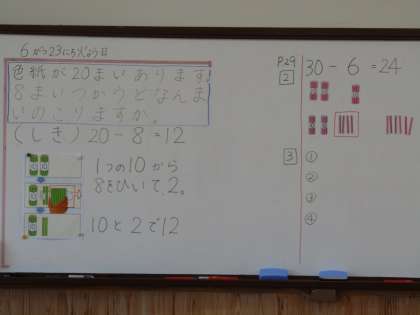 6がつ23にち火よう日
色紙が20まいあります。
8まいつかうとなんま
いのこりますか。
(しき) 20-8=12
1つの10から
8をひいて、2。
10と2で12
P29
2
30-6=24
3
①
②
③
④